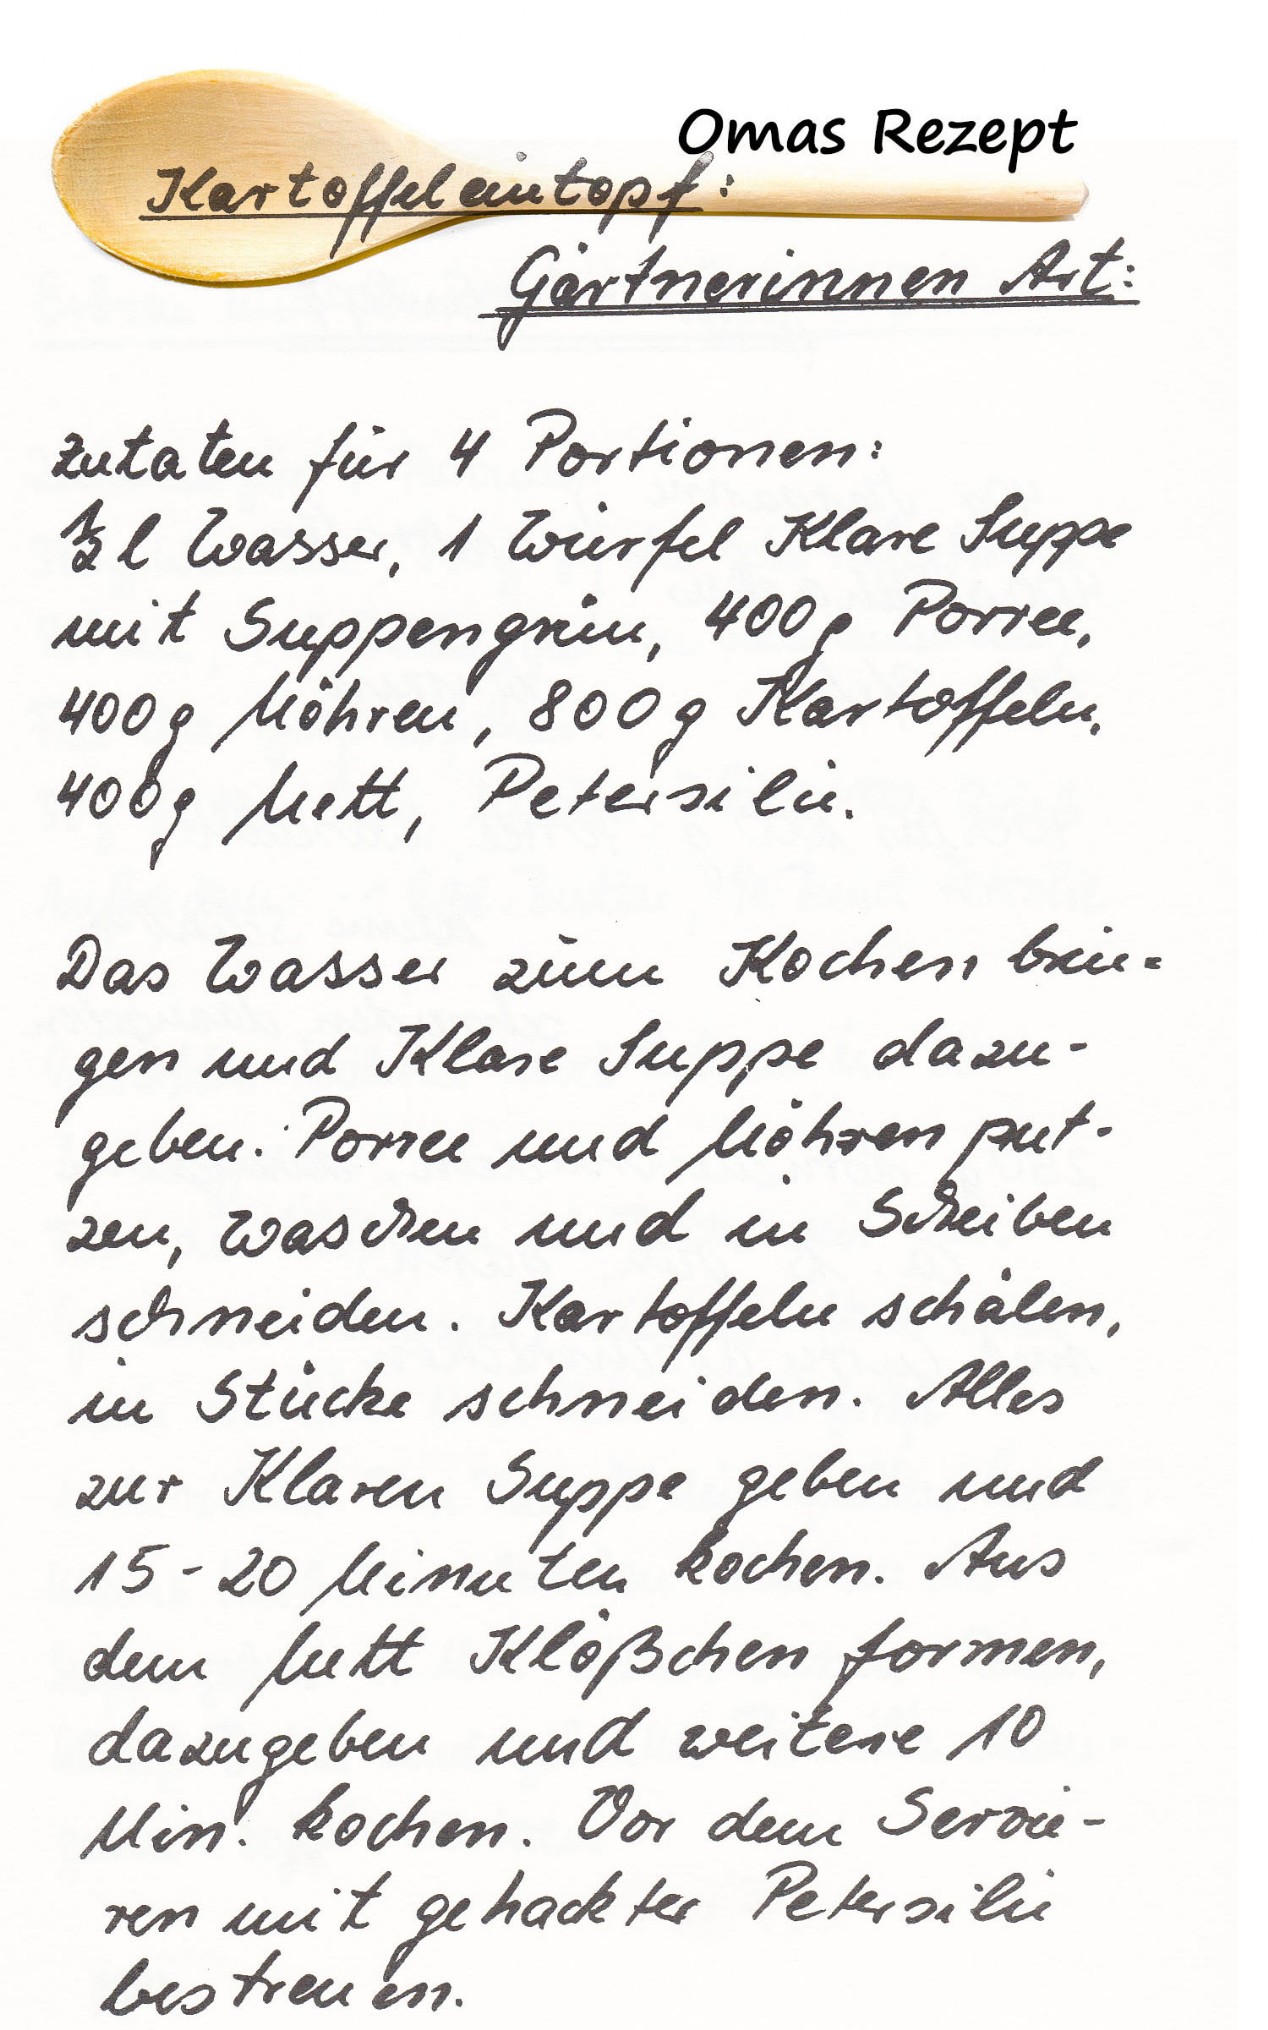 Omas Rezept
Kartoffeleintopf:
Gärtnerinnen Art:
Zutaten für 4 Portionen:
½ l Wasser, 1 Würfel Klare Suppe
mit Suppengrün, 400g Porree,
400g Möhren, 800g Kartoffeln,
400g Mett, Petersilie.
Das Wasser zum Kochen brin=
gen und Klare Suppe dazu-
geben. Porree und Möhren put-
zen, waschen und in Scheiben
schneiden. Kartoffeln schälen,
in Stücke schneiden. Alles
zur Klaren Suppe geben und
15-20 Minuten kochen. Aus
dem Mett Klößchen formen,
dazugeben und weitere 10
Min. kochen. Vor dem Servie-
ren mit gehackter Petersilie
bestreuen.